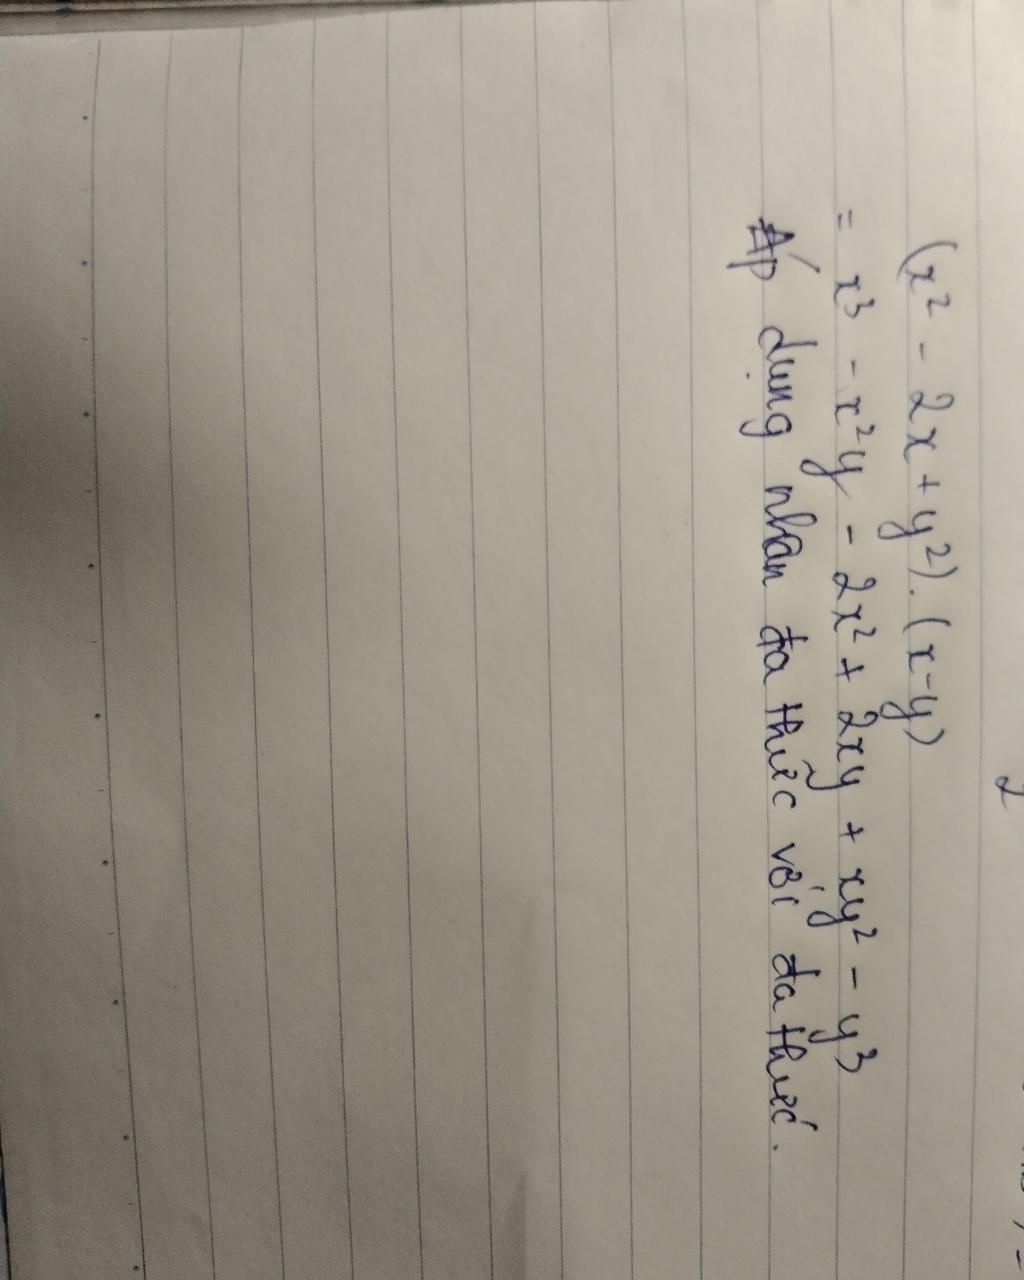 2
(x² - 2x + y²).(x-y)
= x³ - x²y - 2x² + 2xy + xy² - y³
Áp dụng nhân đa thức với đa thức.